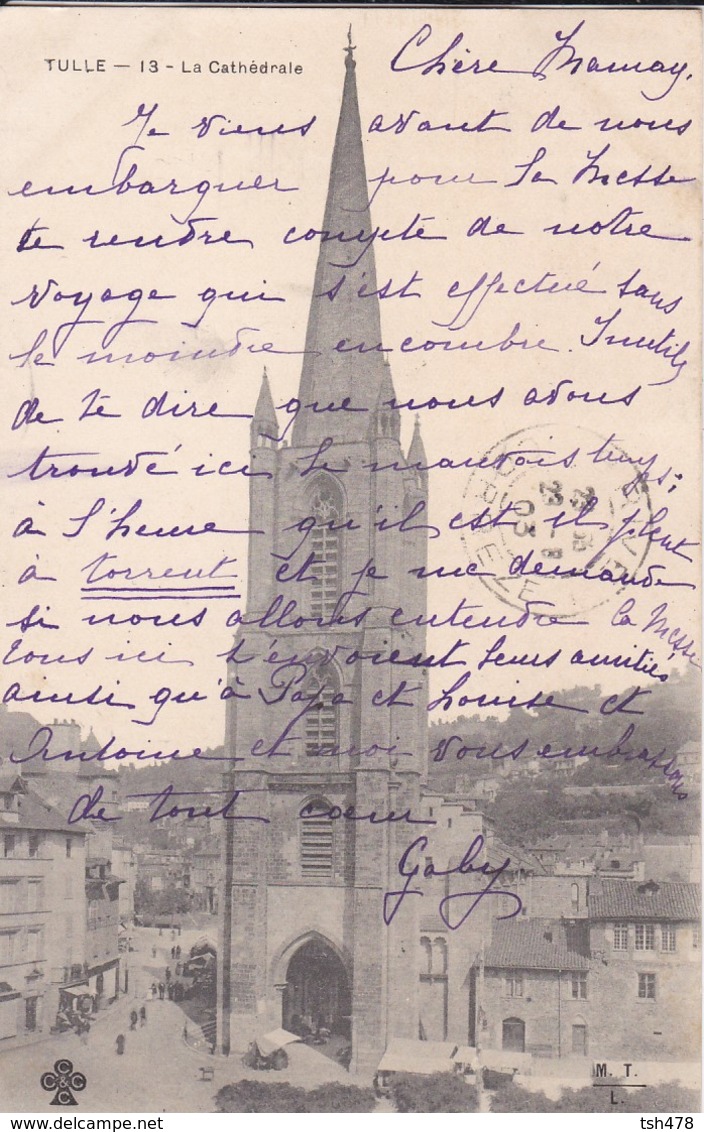 TULLE — 13 - La Cathédrale
Chère Mamay,
Je viens avant de nous
embarquer pour la Messe
te rendre compte de notre
voyage qui s'est effectué sans
le moindre encombre. Inutile
de te dire que nous avons
trouvé ici le mauvais temps;
à l'heure qu'il est il pleut
à torrent et je me demande
si nous allons entendre la Messe
Tous ici t'envoient leurs amitiés
ainsi qu'à Papa et Louise et
Antoine et moi vous embrassons
de tout cœur
Gaby
CCCC
M. T.
L.
tsh478